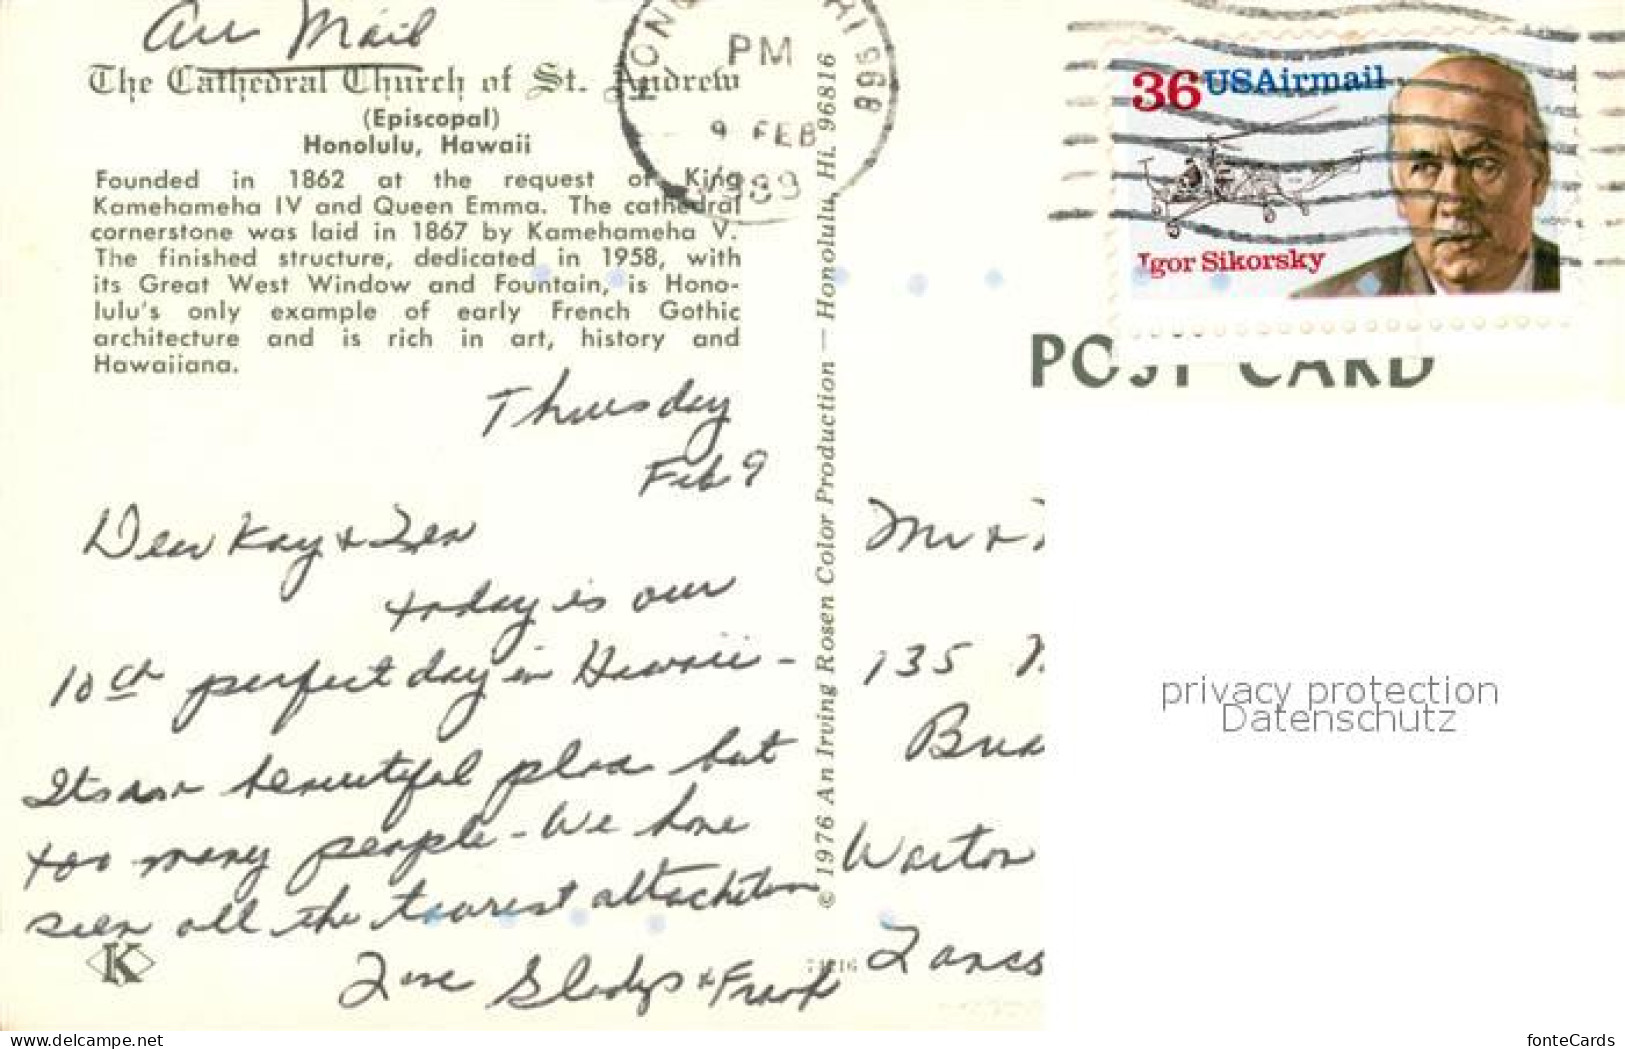 Air Mail
The Cathedral Church of St. Andrew
(Episcopal)
Honolulu, Hawaii
Founded in 1862 at the request of King
Kamehameha IV and Queen Emma. The cathedral
cornerstone was laid in 1867 by Kamehameha V.
The finished structure, dedicated in 1958, with
its Great West Window and Fountain, is Hono-
lulu's only example of early French Gothic
architecture and is rich in art, history and
Hawaiiana.
Thursday
Feb 9
Dear Kay & Len
today is our
10th perfect day in Hawaii -
beautiful place but
too many people - We have
seen all the tourist attachtion
Love Gladys & Frank
K
© 1976 An Irving Rosen Color Production — Honolulu, Hi. 96816
PM
9 FEB
968
36 USAirmail
Igor Sikorsky
POST CARD
Mr &
135
Warton
Lancs
privacy protection
Datenschutz
www.delcampe.net
fonteCards